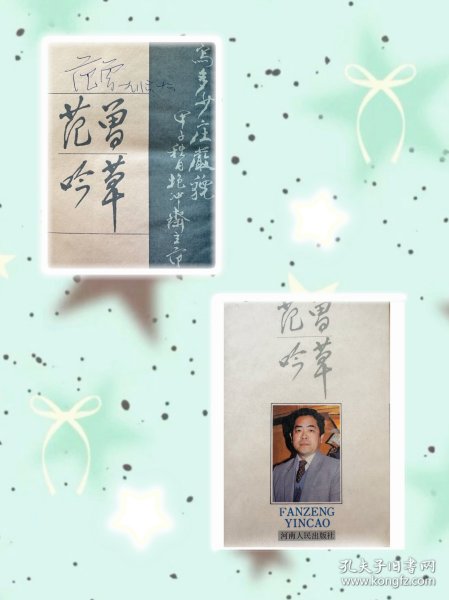 范曾
吟草
寫多少莊嚴貌
范曾
吟草
FANZENG
YINCAO
河南人民出版社
孔夫子旧书网
www.kongfz.com